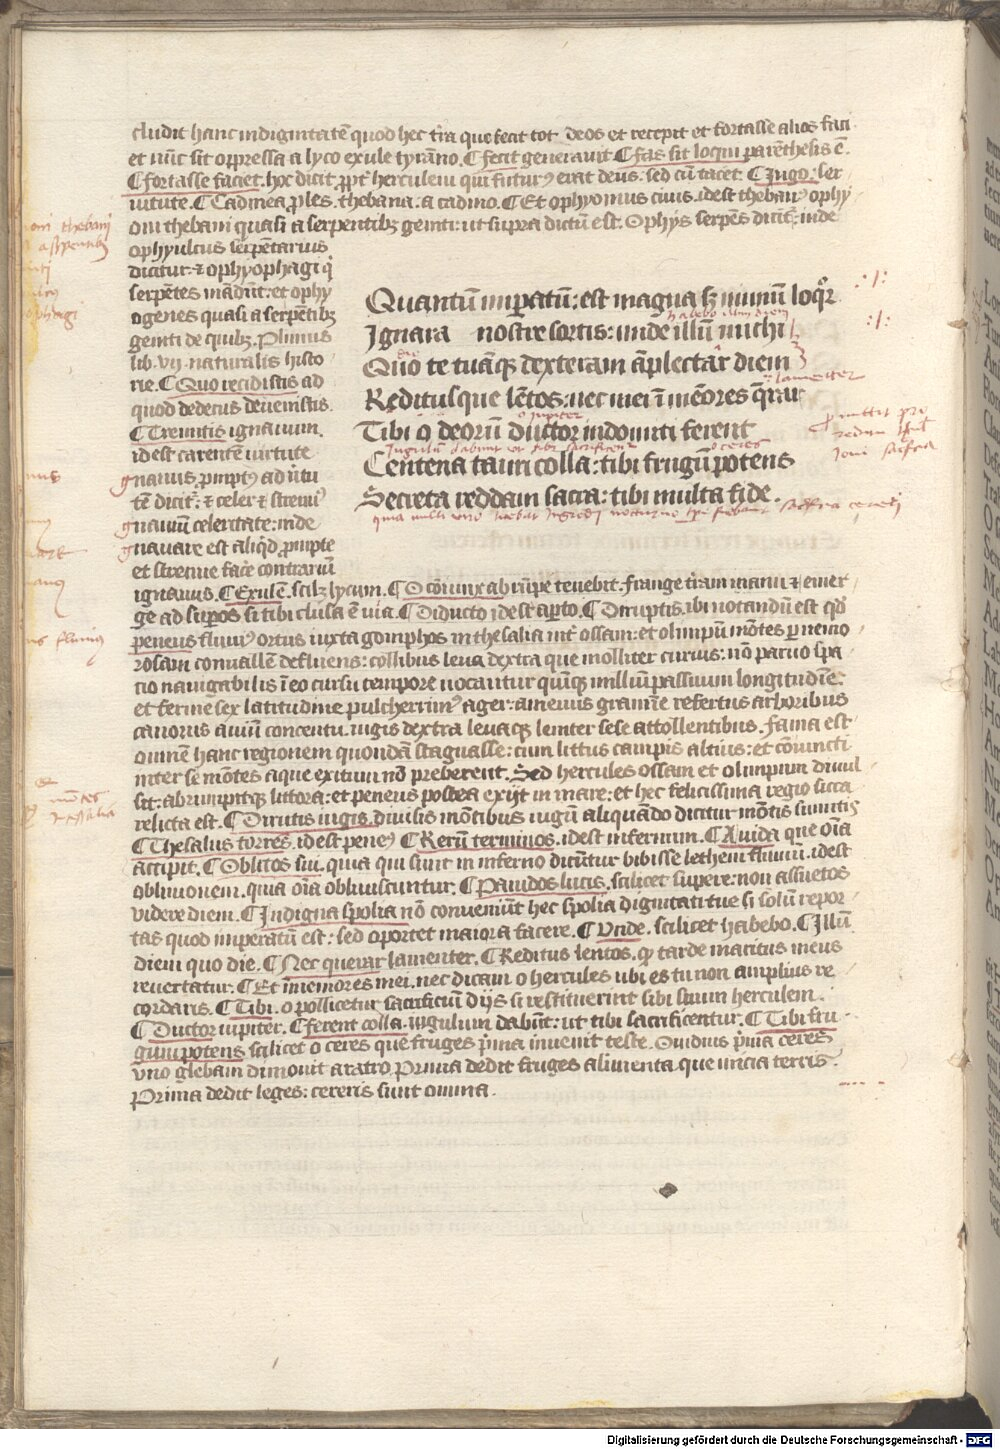 cludit hanc indignitatē quod hec tr̄a que fecit tot deos et recepit et fortasse alios faci
et nūc sit oppressa a lyco exule tyrāno. ¶ fecit generavit ¶ fas sit loqui parēthesis ē.
¶ fortasse faciet. hoc dicit ꝓpt̄ herculem qui futurꝰ erat deus: sed cū tacet. ¶ Iugo: ser
uitute. ¶ Cadmea ꝓles. thebana. a cadmo. ¶ Et ophyonius ciuis. idest thebanꝰ ophy
oni thebani quasi a serpentibꝫ geniti: ut supra dictū est. Ophys serpēs dicit̄: inde
ophyulcus serpētarius
dicitur: ⁊ ophyophagi q̇
serpētes mādūt: et ophy
ogenes quasi a serpētibꝫ
geniti de quibꝫ. Plinius
lib. vij. naturalis histo
rie. ¶ Quo recidistis ad
quod dedecus deuenistis.
¶ Tremitis ignauum.
idest carentē uirtute
gnauus ꝓmptꝰ ad uītu
tē dicit̄: ⁊ celer ⁊ strenuꝰ
gnauū celeritate: inde
gnauare est aliqd̄ ꝓmpte
et strenue facē contrariū
Quantū impatum: est magna sꝫ nimiū loqr̄
habebo illum diem
Ignara nostre sortis: unde illū michi
die
Quo te tuāqꝫ dexteram āplectar diem
lamenter
Reditusque lētos: nec mei īmēores q̄rar
o Jupiter
Tibi o deorū ductor indomiti ferent
Jugulū dabunt ut tibi sacrificent o ceres
Centena tauri colla: tibi frugū potens
Secreta reddam sacra: tibi multa fide.
ignauus. ¶ Exulē. scilꝫ lycum. ¶ O cōiunx abrūpe tenebras. frange tr̄am manu ⁊ emer
ge ad suꝑos si tibi clusa ē uia. ¶ Diducto idest aꝑto. ¶ Diruptis. ibi notandū est qd̄
peneus fluuiꝰ ortus iuxta gomphos in thesalia int̄ ossam: et olimpū mōtes ꝑ nemo
rosam conuallē defluens: collibus leua dextra que molliter curuis: nō paruo spa
tio nauigabilis ī eo cursu tempore uocantur quīqꝫ millium passuum longitudīe:
et ferme sex latitudine pulcherrimꝰ ager: amenus gramīe refertus arboribus
canorus auiū concentu. iugis dextra leuaqꝫ leniter sese attollentibus. fama est
omnē hanc regionem quondā stagnasse: cum littus campis altius: et cōiuncti
inter se mōtes aque exitum nō preberent. Sed hercules ossam et olimpum diuul
sit: abrumpitqꝫ littora: et peneus postea exijt in mare: et hec felicissima regio sicca
relicta est. ¶ Dirutis iugis. diuisis mōtibus iugū aliquādo dicitur mōtis sumitas
¶ Thesalus torrēs. id est peneꝰ ¶ Rerū terminos. idest infernum. ¶ Auida que oīa
accipit. ¶ Oblitos sui. quia qui sunt in inferno dicūtur bibisse lethem fluuiū. idest
obliuionem. quia oīa obliuiscuntur. ¶ Pauidos lucis. scilicet supere: non assuetos
videre diem. ¶ Indigna spolia nō conueniūt hec spolia dignitati tue si solū repor
tas quod imperatū est: sed oportet maiora facere. ¶ Unde. scilicet habebo. ¶ Illū
diem quo die. ¶ Nec querar lamenter. ¶ Reditus lentos. qꝫ tarde maritus meus
reuertatur. ¶ Et īmemores mei. nec dicam o hercules ubi es tu non amplius re
cordaris. ¶ Tibi. o pollicetur sacrificiū dijs si restituerint sibi suum herculem.
¶ Ductor iupiter. ¶ ferent colla. iugulum dabūt: ut tibi sacrificentur. ¶ Tibi fru
gum potens scilicet o ceres que fruges p̄ma inuenit teste. Ouidius p̄ma ceres
vno glebam dimouit aratro. Prima dedit fruges alimenta que micia terris.
Prima dedit leges: cereris sunt omnia.
oni thebani
a serpentibꝫ
mōtes
thessalia
Digitalisierung gefördert durch die Deutsche Forschungsgemeinschaft - DFG